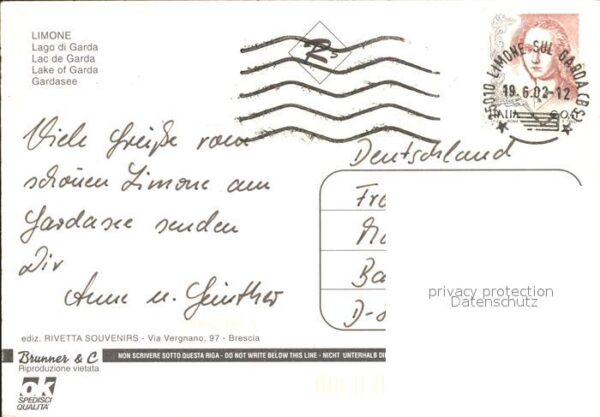 LIMONE
Lago di Garda
Lac de Garda
Lake of Garda
Gardasee
25010 LIMONE SUL GARDA (BS)
19.6.02-12
ITALIA
Viele Grüße vom
schönen Limone am
Gardasee senden
Dir
Anne u. Günther
Deutschland
Fr
Ba
D-
privacy protection
Datenschutz
ediz. RIVETTA SOUVENIRS - Via Vergnano, 97 - Brescia
Brunner & C
Riproduzione vietata
NON SCRIVERE SOTTO QUESTA RIGA - DO NOT WRITE BELOW THIS LINE - NICHT UNTERHALB DI
ok
SPEDISCI
QUALITA'